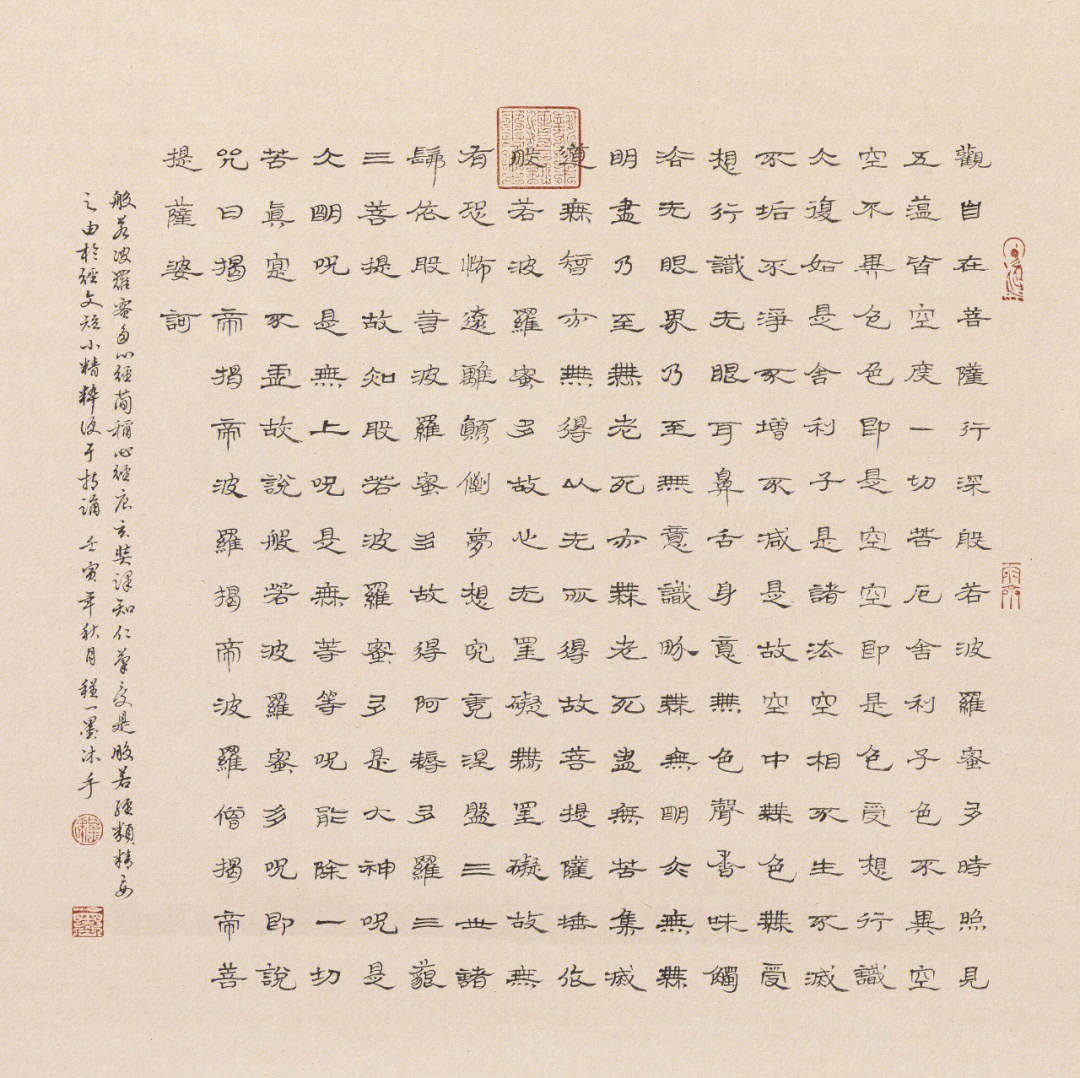 觀自在菩薩行深般若波羅蜜多時照見
五蘊皆空度一切苦厄舍利子色不異空
空不異色色即是空空即是色受想行識
亦復如是舍利子是諸法空相不生不滅
不垢不淨不增不減是故空中無色無受
想行識无眼耳鼻舌身意無色聲香味觸
法无眼界乃至無意識界無無明亦無無
明盡乃至無老死亦無老死盡無苦集滅
道無智亦無得以无所得故菩提薩埵依
般若波羅蜜多故心无罣礙無罣礙故無
有恐怖遠離顛倒夢想究竟涅盤三世諸
髴依般若波羅蜜多故得阿耨多羅三藐
三菩提故知般若波羅蜜多是大神呪是
大明呪是無上呪是無等等呪能除一切
苦真寔不虛故說般若波羅蜜多呪即說
咒曰揭帝揭帝波羅揭帝波羅僧揭帝菩
提薩婆訶
般若波羅蜜多心經簡稱心經唐玄奘譯知仁筆受是般若經類精要
之由於經文短小精粹便于持誦 壬寅年秋月程一墨沐手